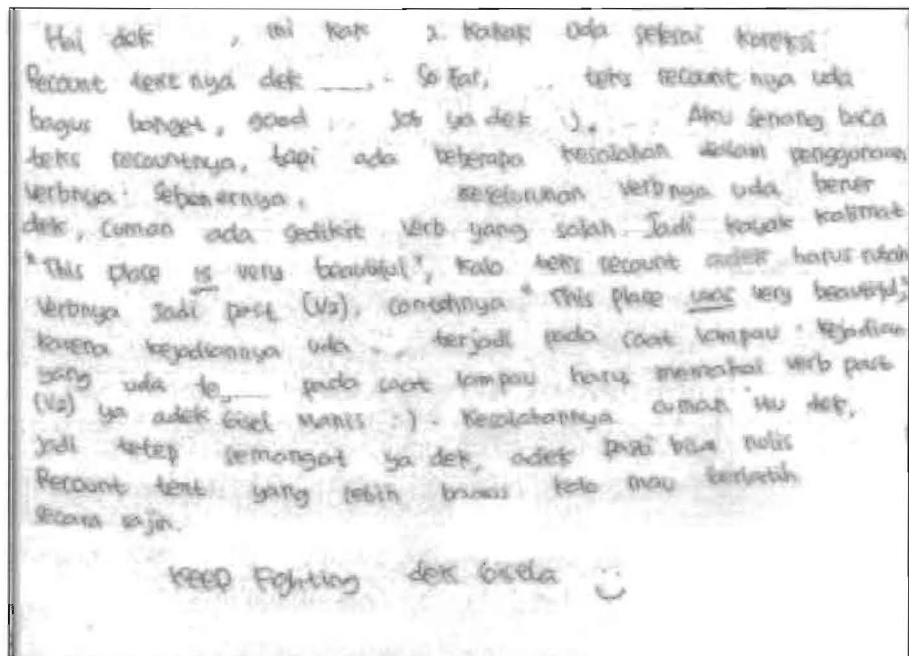 Hai dek , ini kak . Kakak uda selesai koreksi
Recount text nya dek ___. So far, teks recount nya uda
bagus banget, good job ya dek :). Aku senang baca
teks recountnya, tapi ada beberapa kesalahan dalam penggunaan
verbnya. Sebenernya, keseluruhan verbnya uda bener
dek, cuman ada sedikit verb yang salah. Jadi kayak kalimat
"This place is very beautiful", kalo teks recount adek harus rubah
verbnya jadi past (V2), contohnya "This place was very beautiful",
karena kejadiannya uda terjadi pada saat lampau. Kejadian
yang uda pada saat lampau harus memakai verb past
(V2) ya adek Gisel manis :). Kesalahannya cuman itu dek,
jadi tetep semangat ya dek, adek pasti bisa nulis
Recount text yang lebih bagus kalo mau berlatih
secara rajin.
Keep Fighting dek Gisela